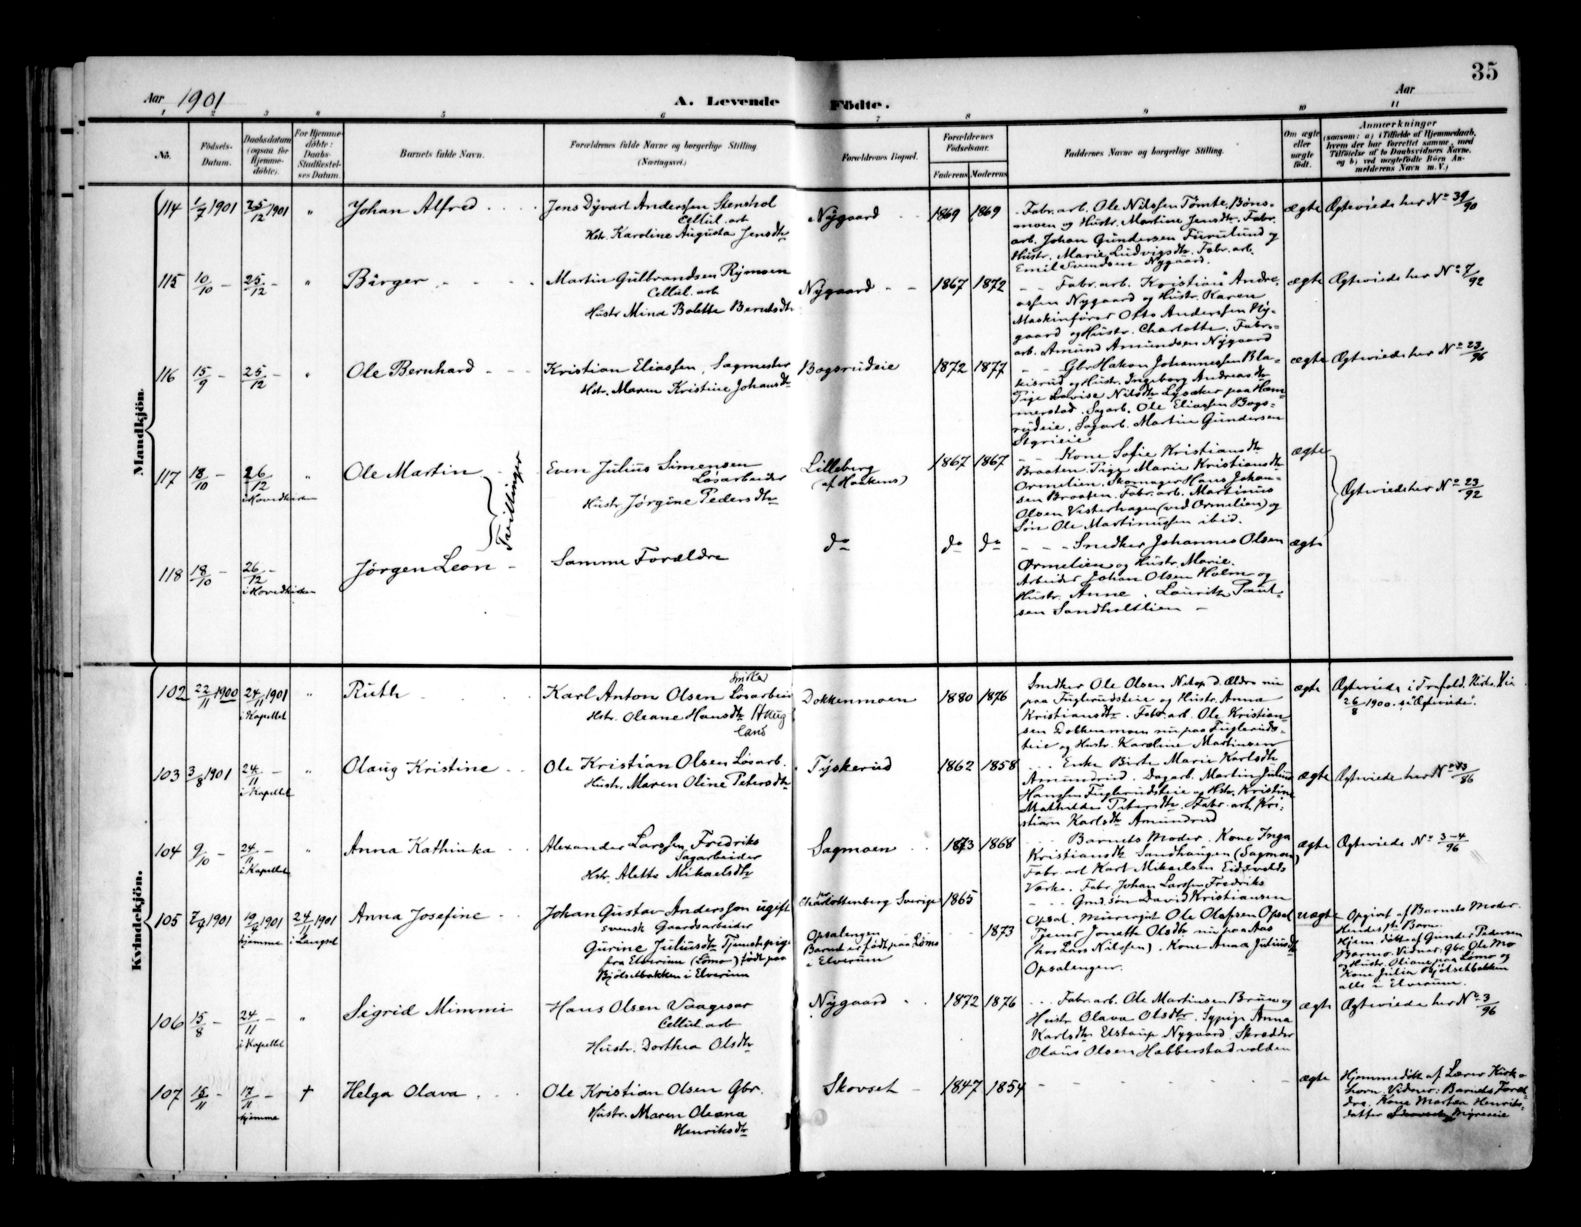 35
Aar 1901
A. Levende Fødte.
Aar
1 2 3 4 5 6 7 8 9 10 11
No.
Fødsels-Datum.
Daabsdatum (ogsaa for Hjemmedøbte).
For Hjemmedøbte: Daabs-Stadfæstelses Datum.
Barnets fulde Navn.
Forældrenes fulde Navne og borgerlige Stilling
(Næringsvei.)
Forældrenes Bopæl.
Forældrenes Fødselsaar.
Faderens Moderens
Faddernes Navne og borgerlige Stilling.
Om ægte eller uægte født.
Anmærkninger
(saasom: a) i Tilfælde af Hjemmedaab, hvem der har forrettet samme, med Tilføielse af to Daabsvidners Navne, og b) ved uægtefødte Børn Anmelderens Navn m. V.)
Mandkjøn
114 1/7 1901 25/12 1901 " Johan Alfred
Jens Dyvart Anderssen Stenshol
Cellul. arb
Hstr. Karoline Augusta Jensdtr
Nygaard 1869 1869
Fabr. arb. Ole Nilssen Tømte, Bøns-
moen og Hustr. Martine Jensdtr. Fabr.
arb. Johan Gundersen Furulund og
Hustr. Marie Ludvigsdtr. Fabr. arb.
Emil Svendsen Nygaard.
ægte Ægteviede her No 39/90
115 10/10 - 25/12 - " Birger
Martin Gulbrandsen Rymoen
Cellul. arb
Hustr Mina Bolette Berntsdtr
Nygaard 1867 1872
Fabr. arb. Kristian Andre-
assen Nygaard og Hustr. Karen
Maskinfører Otto Anderssen Ny-
gaard og Hustr. Charlotte. Fabr.
arb. Amund Amundsen Nygaard
ægte Ægteviede her No 7/92
116 15/9 - 25/12 - " Ole Bernhard
Kristian Eliassen, Sagmester
Hstr. Maren Kristine Johansdtr
Bogsrudeie 1872 1877
Gbr. Hakon Johannessen Bla-
kisrud og Hustr. Ingeborg Andreasdtr
Pige Lovise Nilsdtr Lysaker paa Ham-
merstad. Sagarb. Ole Eliassen Bogs-
rudeie, Sagarb. Martin Gundersen
Styrieie
ægte Ægteviede her No 23/96
117 18/10 - 26/12 " Ole Martin
i Hovedkirken
Even Julius Simensen
Løsarbeider
Hustr Jørgine Pedersdtr
Lilleberg
(af Haakens)
1867 1867
Kone Sofie Kristiansdtr
Braaten. Pige Marie Kristiansdtr
Ormelien. Skomager Hans Johan-
sen Braaten. Fabr. arb. Martinus
Olsen Vesterhagen (ved Ormelien) og
Søn Ole Martinussen ibid.
ægte Ægteviede her No 23/92
Tvillinger
118 18/10 26/12 - Jørgen Leon -
i Hovedkirken
Samme Forældre
do do do
Snedker Johannes Olsen
Ormelien og Hustr. Marie.
Arbeider Johan Olsen Holm og
Hustr. Anne. Lauritz Paul-
sen Sandholtlien -
ægte
Kvindekjøn.
102 22/11 1900 24/11 1901 " Ruth
i Kapellet
Karl Anton Olsen Løsarbeid
Hstr. Oleane Hansdtr Haug
land
Dokkenmoen 1880 1876
Snedker Ole Olsen D. Ældre nu
paa Fuglerudsteie og Hustr. Anna
Kristiansdtr. Fabr. arb. Ole Kristian-
sen Dokkenmoen nu paa Fugleruds-
teie og Hustr. Karoline Martinsen
ægte Ægteviede i Trefold. Kirke Kra
26/8 1900.
103 3/8 1901 24/11 - " Olaug Kristine
i Kapellet
Ole Kristian Olsen Løsarb.
Hustr. Maren Oline Petersdtr
Tyskerud 1862 1858
Enke Birthe Marie Karlsdtr
Amundrud. Dagarb. Martin Julius
Hansen Fuglerudsteie og Hstr. Kristine
Mathilde Petersdtr. Fabr. arb. Kri-
stian Karlsdtr Amundrud
ægte Ægteviede her No 23/86
104 9/10 - 24/11 - " Anna Kathinka
i Kapellet
Alexander Larssen Fredriks
Sagarbeider
Hstr. Alette Mikaelsdtr
Sagmoen 1873 1868
Barnets Moder. Kone Inga
Kristiansdtr Sandhaugen (Sagmoen)
Fabr. arb Karl Mikaelsen Eidsvolds
Værk. Fabr. Johan Larssen Fredriks
ægte Ægteviede No 3-4/96
105 7/9 1901 19/9 1901 24/11 1901 Anna Josefine
hjemme i Langset
Johan Gustav Andersson ugift
svensk Gaardsarbeider
Gurine Juliusdtr Tjenestepige
fra Elverum (Lømo) født paa
Bjølsetbakken i Elverum
Charlottenberg Sverige 1865
Opsalengen 1873
Barnet er født paa Lømo
i Elverum
Gmd. søn David Kristiansen
Opsal. Murer ugift Ole Olafsen Opsal
Tjener Jonette Olsdtr nu paa Aas
(hos Lars Nilssen). Kone Anna Juliusdtr
Opsalengen.
uægte Opgivet af Barnets Moder.
Hendes 1ste Barn.
Hjemdøbt af Gunder Pedersen
Barmo. Vidner: Gbr. Ole Mo
og Hustr. Oliane paa Lømo og
Kone Julia Bjølsetbakken
alle i Elverum.
106 15/8 - 24/11 - " Sigrid Mimmi
i Kapellet
Hans Olsen Vaagesar
Cellul. arb
Hustr. Dorthea Olsdtr
Nygaard 1872 1876
Fabr. arb. Ole Martinsen Bruun og
Hustr Olava Olsdtr. Sypige Anna
Karlsdtr. Elstaup Nygaard. Skrædder
Olaus Olsen Habberstadvolden
ægte Ægteviede her No 3/96
107 15/11 - 17/11 - † Helga Olava
hjemme
Ole Kristian Olsen Gbr.
Hustr. Maren Oleana
Henriksdtr
Skovset 1847 1854
ægte Hjemmedøbt af Lærer Kirke-
horn. Vidner: Barnets Foræl-
dre. Kone Marthea Henriks-
datter Myreeie